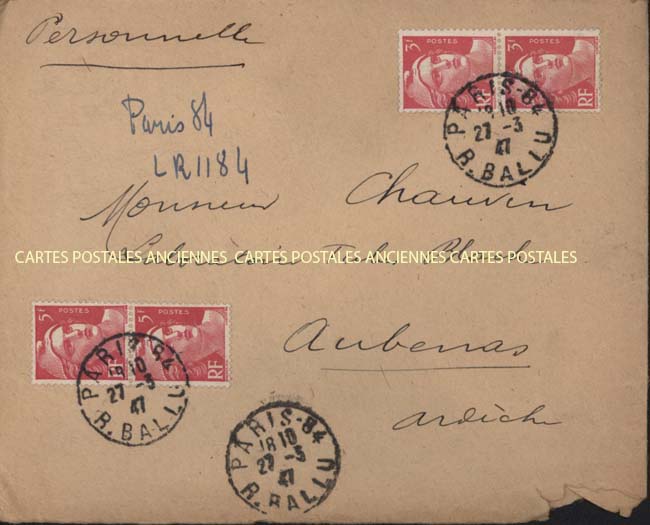 Personnelle
3F POSTES RF
3F POSTES RF
PARIS-84
18 10
27 -3
47
R. BALLU
Paris 84
LR1184
Monsieur Chauvin
CARTES POSTALES ANCIENNES CARTES POSTALES ANCIENNES CARTES POSTALES
5F POSTES RF
5F POSTES RF
PARIS-84
18 10
27 -3
47
R. BALLU
Aubenas
Ardèche
PARIS-84
18 10
27 -3
47
R. BALLU